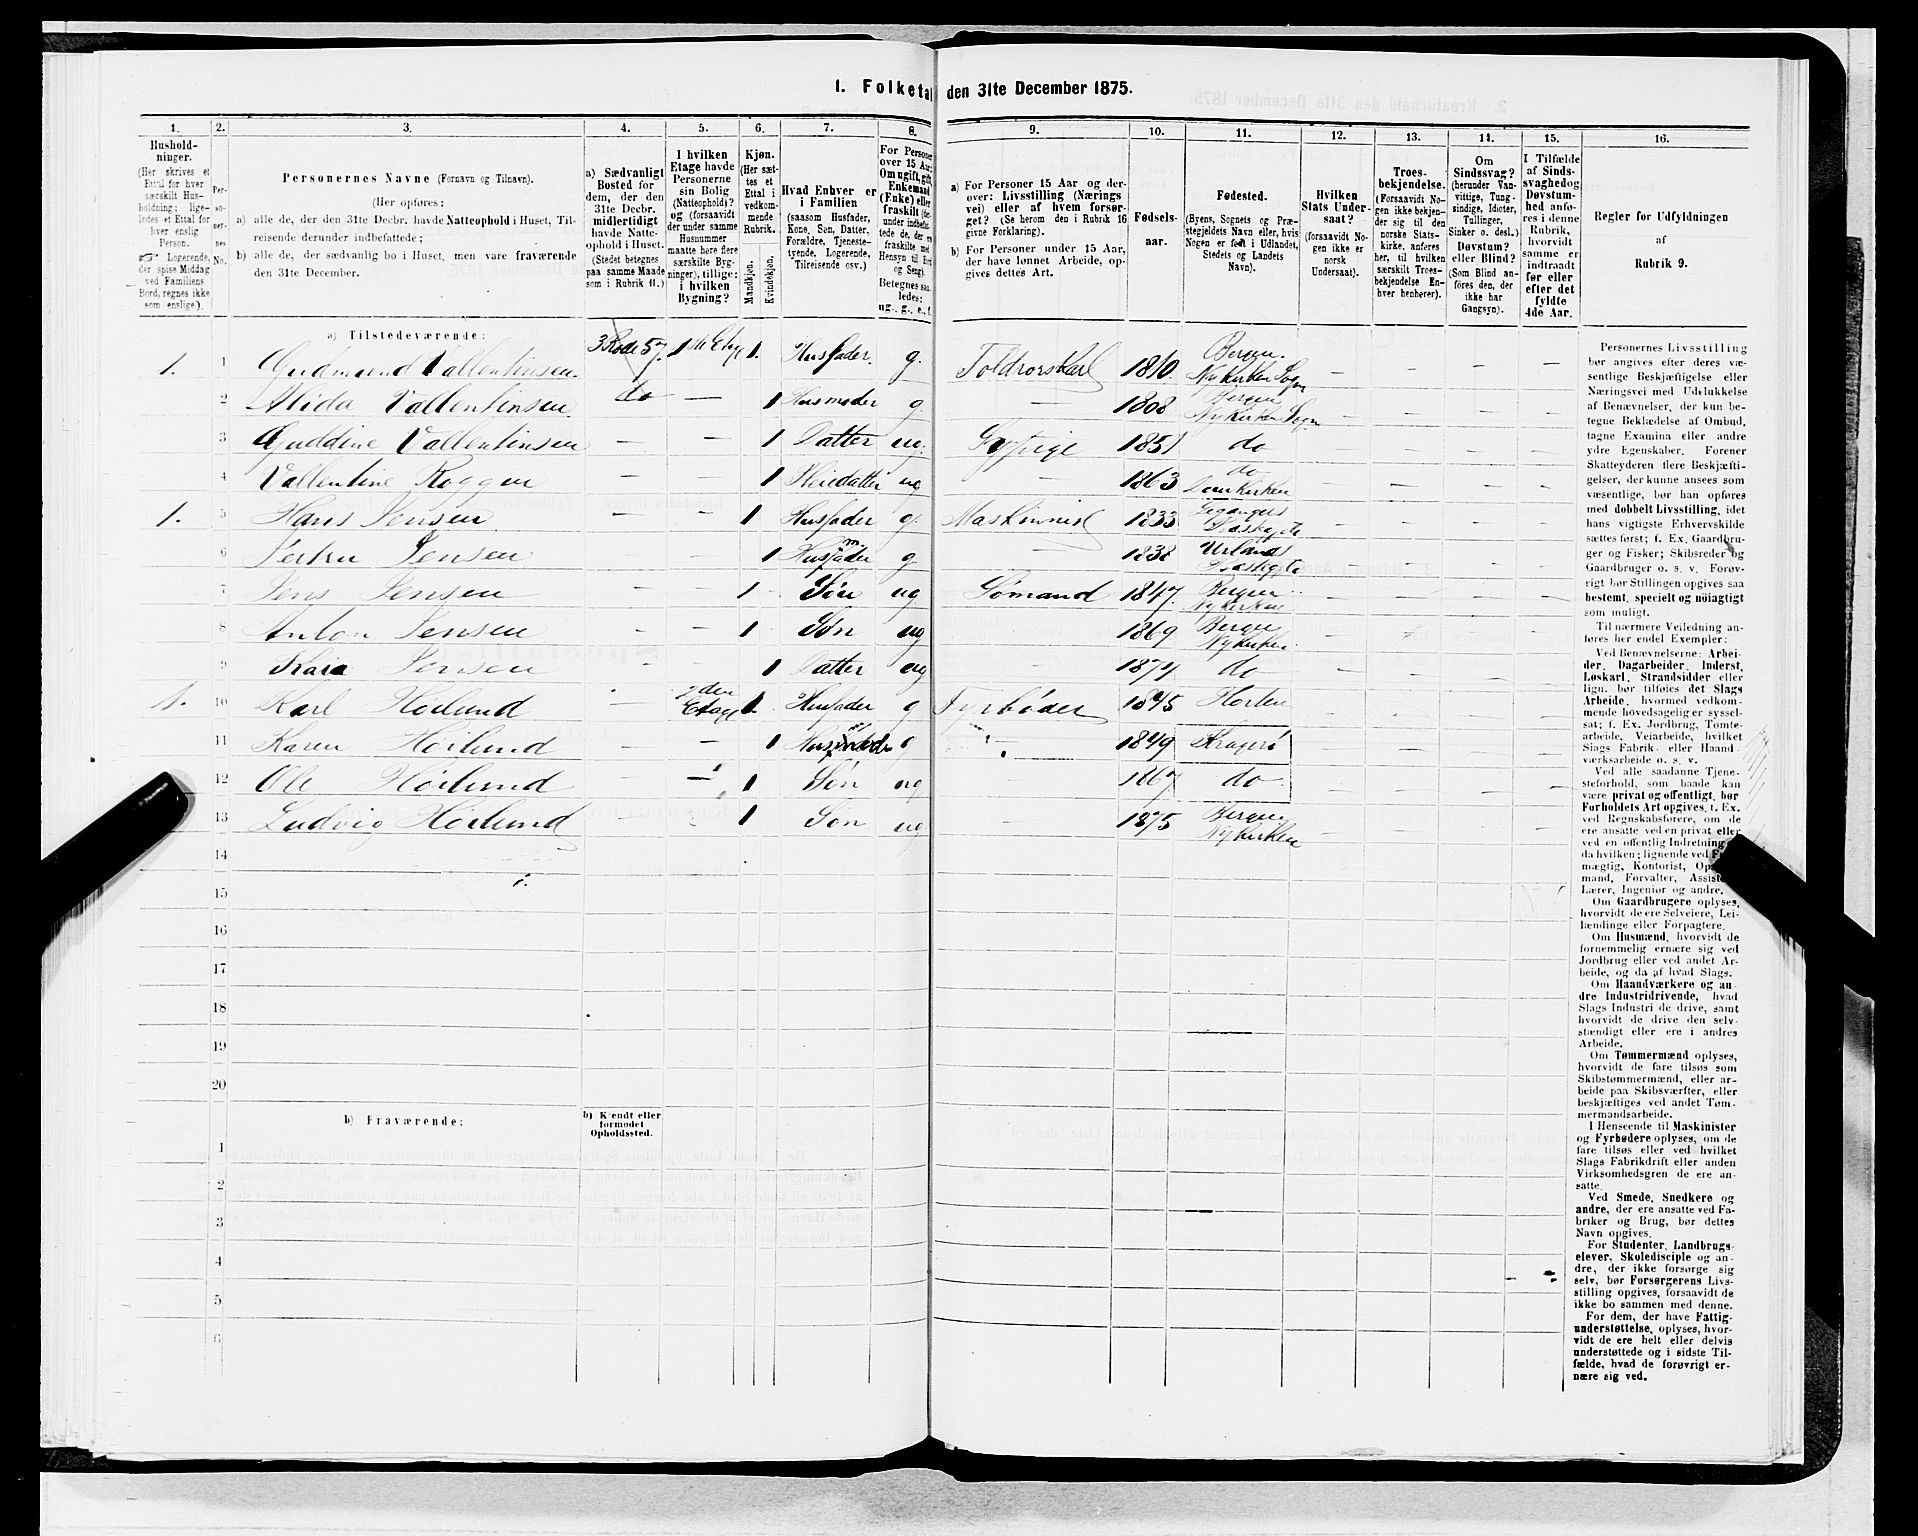 1. Folketal den 31te December 1875.
1. 2. 3. 4. 5. 6. 7. 8. 9. 10. 11. 12. 13. 14. 15. 16.
Hushold-
ninger.
(Her skrives et
Ettal for hver
særskilt Hus-
holdning; lige-
ledes et Ettal for
hver enslig
Person.
☞ Logerende,
der spise Middag
ved Familiens
Bord, regnes ikke
som enslige).
Per-
so-
ner-
nes
No.
Personernes Navne (Fornavn og Tilnavn).
(Her opføres:
a) alle de, der den 31te Decbr. havde Natteophold i Huset, Til-
reisende derunder indbefattede;
b) alle de, der sædvanlig bo i Huset, men vare fraværende
den 31te December.
a) Sædvanligt
Bosted for
dem, der den
31te Decbr.
midlertidigt
havde Natte-
ophold i Huset.
(Stedet betegnes
paa samme Maade
som i Rubrik 11.)
I hvilken
Etage havde
Personerne
sin Bolig
(Natteophold)?
og (forsaavidt
der under samme
Husnummer
maatte høre flere
særskilte Byg-
ninger), tillige:
i hvilken
Bygning?
Kjøn.
(Her sæt-
tes et
Ettal i
vedkom-
mende
Rubrik.
Mandkjøn.
Kvindekjøn.
Hvad Enhver er
i Familien
(saasom Husfader,
Kone, Søn, Datter,
Forældre, Tjeneste-
tyende, Logerende,
Tilreisende osv.)
For Personer
over 15 Aar:
Om ugift, gift,
Enkemand
(Enke) eller
fraskilt
Betegnes saa-
ledes:
ug., g., e., f.
a) For Personer 15 Aar og der-
over: Livsstilling (Nærings-
vei) eller af hvem forsør-
get? (Se herom den i Rubrik 16
givne Forklaring).
b) For Personer under 15 Aar,
der have lønnet Arbeide, op-
gives dettes Art.
Fødsels-
aar.
Fødested.
(Byens, Sognets og Præ-
stegjeldets Navn eller, hvis
Nogen er født i Udlandet,
Stedets og Landets
Navn).
Hvilken
Stats Under-
saat?
(forsaavidt No-
gen ikke er
norsk
Undersaat).
Troes-
bekjendelse.
(Forsaavidt No-
gen ikke bekjen-
der sig til den
norske Stats-
kirke, anføres
her, til hvilken
særskilt Troes-
bekjendelse En-
hver henhører).
Om
Sindssvag?
(herunder Van-
vittige, Tung-
sindige, Idioter,
Tullinger,
Sinker o. desl.)
Døvstum?
eller Blind?
(Som Blind an-
føres den, der
ikke har
Gangsyn).
I Tilfælde
af Sinds-
svaghed og
Døvstum-
hed anfø-
res i denne
Rubrik,
hvorvidt
samme er
indtraadt
før eller
efter det
fyldte
4de Aar.
Regler for Udfyldningen
af
Rubrik 9.
a) Tilstedeværende:
1. 1 Gudmund Vallentinsen. 3 Rode 57. 1ste Etage 1. Husfader. g. Toldrorskarl 1810. Bergen Nykirken Sogn — — — —
2 Alida Vallentinsen do — 1 Husmoder g. — 1808 Bergen Nykirken Sogn — — — —
3 Guddine Vallentinsen — — 1 Datter ug. 1851 do — — — —
4 Vallentine Roggen — — 1 Pleiedatter ug — 1863 do Domkirken — — — —
1. 5 Hans Jensen — — 1 Husfader g. Maskinnist 1833 Præstegjld — — — —
6 Jensen — — 1 Husmoder g — 1838 Urlands Præstegjld — — — —
7 Jens Jensen — — 1 Søn ug Sømand 1847. Bergen Nykirken — — — —
8 Anton Jensen — — 1 Søn ug — 1869 Bergen Nykirken — — — —
9 Jensen — — 1 Datter ug — 1874 do — — — —
1. 10 Karl Høilund — 2den Etage 1. Husfader g Fyrbøder 1845 Horten — — — —
11 Karen Høilund — — 1 Husmoder g — 1849 Kragerø — — — —
12 Ole Høilund — — 1 Søn ug — 1867 do — — — —
13 Ludvig Høilund 1 Søn ug — 1875 Bergen Nykirken — — — —
14
15
16
17
18
19
20
b) Fraværende:
b) Kjendt eller
formodet
Opholdssted.
1
2
3
4
5
6
Personernes Livsstilling
bør angives efter deres væ-
sentlige Beskjæftigelse eller
Næringsvei med Udelukkelse
af Benævnelser, der kun be-
tegne Beklædelse af Ombud,
tagne Examina eller andre
ydre Egenskaber. Forener
Skatteyderen flere Beskjæfti-
gelser, der kunne ansees som
væsentlige, bør han opføres
med dobbelt Livsstilling, idet
hans vigtigste Erhvervskilde
sættes først; f. Ex. Gaardbru-
ger og Fisker; Skibsreder og
Gaardbruger o. s. v. Forøv-
rigt bør Stillingen opgives saa
bestemt, specielt og nöiagtigt
som muligt.
Til nærmere Veiledning an-
føres her endel Exempler:
Ved Benævnelserne: Arbei-
der, Dagarbeider, Inderst,
Løskarl, Strandsidder eller
lign. bør tilføies det Slags
Arbeide, hvormed vedkom-
mende hovedsagelig er syssel-
sat; f. Ex. Jordbrug, Tomte-
arbeide, Veiarbeide, hvilket
Slags Fabrik- eller Haand-
værksarbeide o. s. v.
Ved alle saadanne Tjene-
steforhold, som baade kan
være privat og offentligt, bør
Forholdets Art opgives, t. Ex.
ved Regnskabsførere, om de
ere ansatte ved en privat eller
ved en offentlig Indretning
da hvilken; lignende ved
mægtig, Kontorist,
mand, Forvalter,
Lærer, Ingeniør og andre.
Om Gaardbrugere oplyses,
hvorvidt de ere Selveiere, Lei-
lændinge eller Forpagtere.
Om Husmænd, hvorvidt de
fornemmelig ernære sig ved
Jordbrug eller ved andet Ar-
beide, og da af hvad Slags.
Om Haandværkere og an-
dre Industridrivende, hvad
Slags Industri de drive, samt
hvorvidt de drive den selv-
stændigt eller ere i andres
Arbeide.
Om Tømmermænd oplyses,
hvorvidt de fare tilsøs som
Skibstømmermænd, eller ar-
beide paa Skibsværfter, eller
beskjæftiges ved andet Tøm-
mermandsarbeide.
I Henseende til Maskinister
og Fyrbødere oplyses, om de
fare tilsøs eller ved hvilket
Slags Fabrikdrift eller anden
Virksomhedsgren de ere an-
satte.
Ved Smede, Snedkere og
andre, der ere ansatte ved Fa-
briker og Brug, bør dettes
Navn opgives.
For Studenter, Landbrugs-
elever, Skoledisciple og an-
dre, der ikke forsørge sig
selv, bør Forsørgerens Livs-
stilling opgives, forsaavidt de
ikke bo sammen med denne.
For dem, der have Fattig-
understøttelse, oplyses, hvor-
vidt de ere helt eller delvis
understøttede og i sidste Til-
fælde, hvad de forøvrigt er-
nære sig ved.